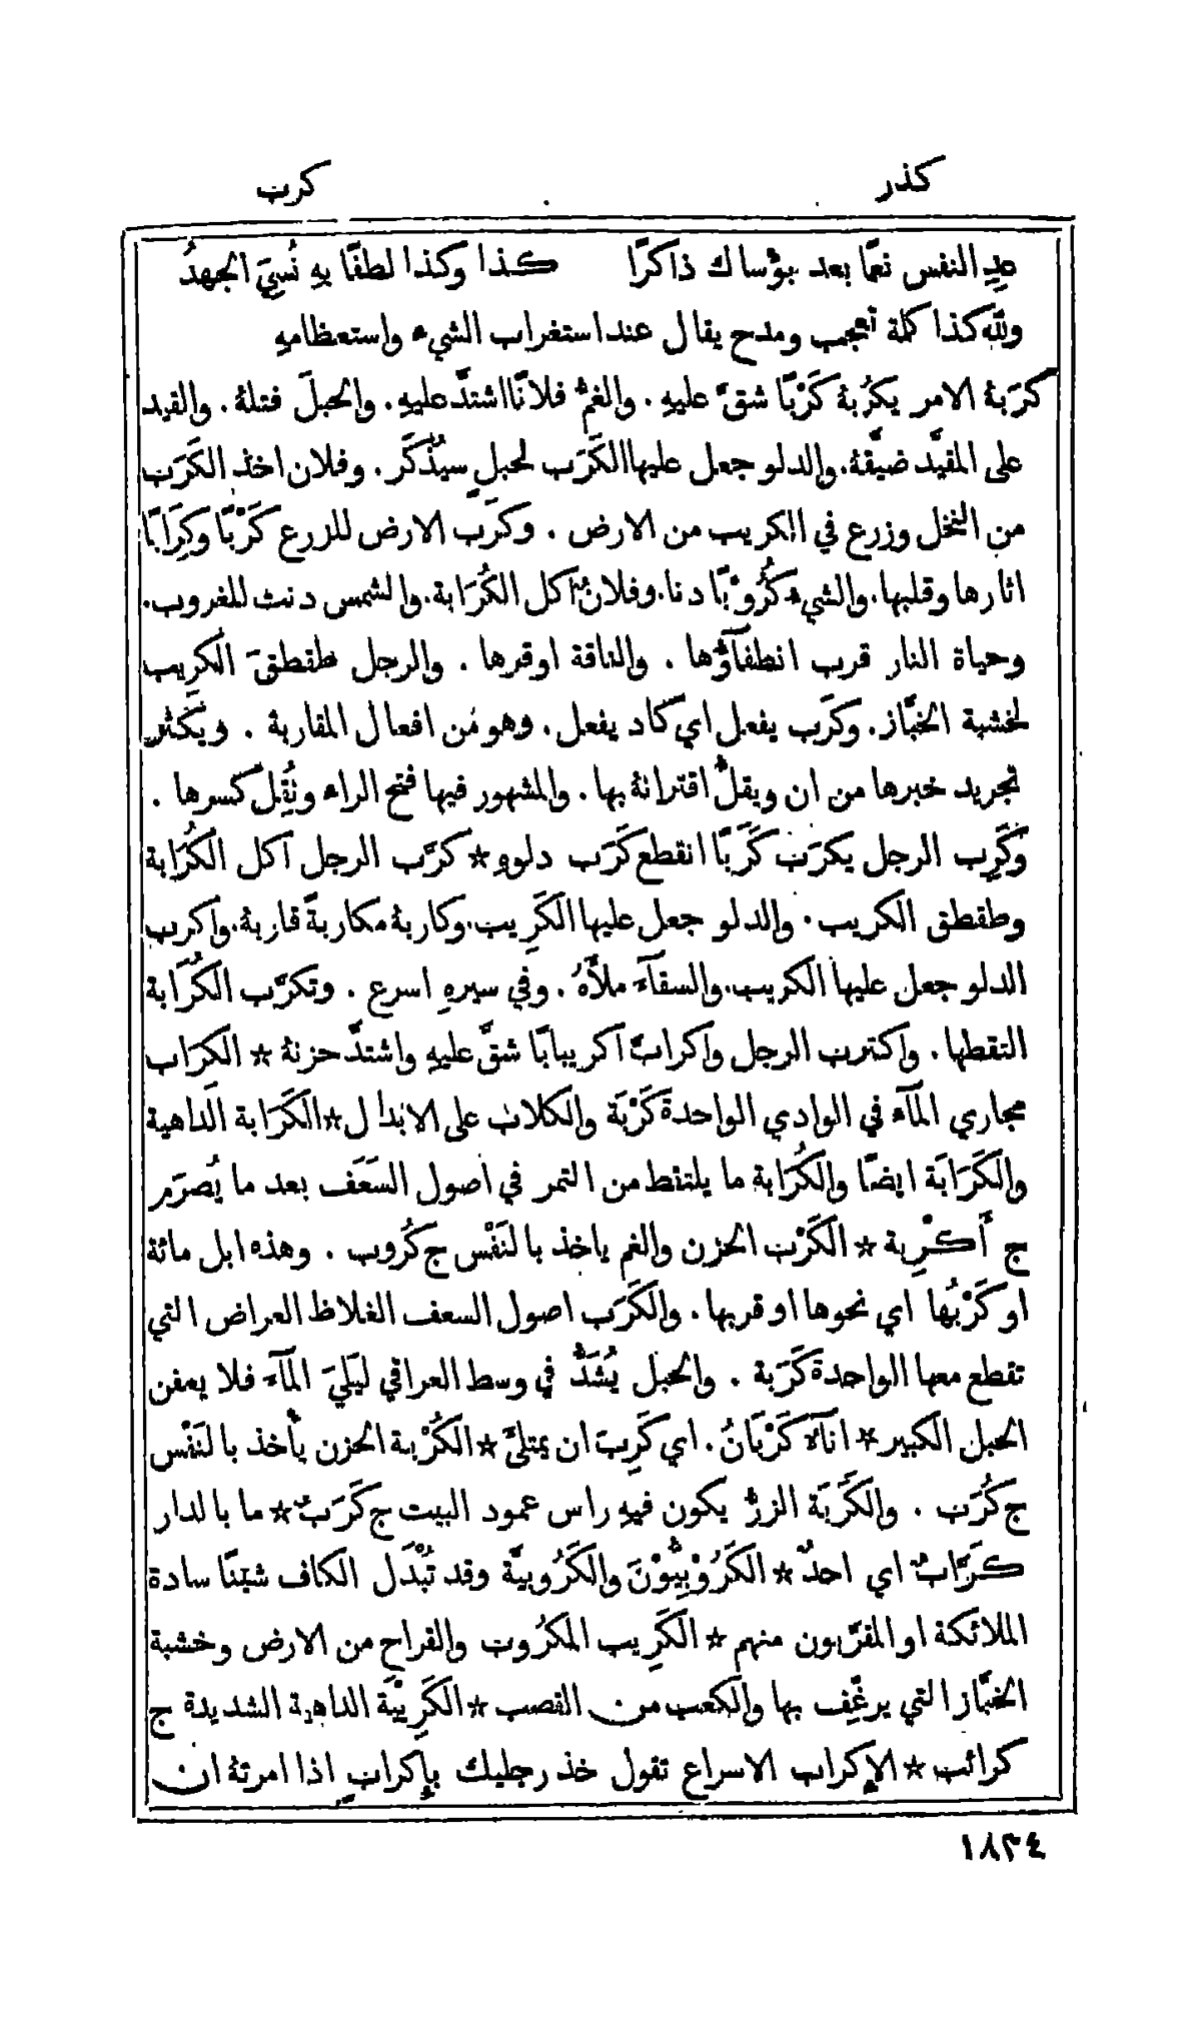 كذر
كرب
عِدِ النفس نعمًا بعد بؤساك ذاكرًا كذا وكذا لطفًا بهِ نُسِيَ الجهدُ
ولله كذا كلمة تعجب ومدح يقال عند استغراب الشيء واستعظامهِ
كرَبهُ الامر يكرُبهُ كَرْبًا شقَّ عليهِ. والغمُّ فلانًا اشتدَّ عليهِ. والحبلَ فتلهُ. والقيد
على المقيَّد ضيَّقهُ. والدلو جعل عليها الكَرَب لحبلٍ سيُذْكَر. وفلان اخذ الكَرَب
من النخل وزرع في الكريب من الارض. وكرَب الارض للزرع كَرْبًا وكِرَابًا
اثارها وقلبها. والشيء كُرُوْبًا دنا. وفلانٌ اكل الكُرَابة. والشمس دنت للغروب.
وحياة النار قرب انطفآؤُها. والناقة اوقرها. والرجل طقطقَ الكَرِيب
لخشبة الخبَّاز. وكرَب يفعل اي كاد يفعل. وهو من افعال المقاربة. ويكثر
تجريد خبرها من ان ويقلُّ اقترانهُ بها. والمشهور فيها فتح الراء ونُقِل كسرها.
وكَرِب الرجل يكرَب كَرَبًا انقطع كَرَب دلوهِ * كرَّب الرجل اكل الكُرَابة
وطقطق الكريب. والدلو جعل عليها الكَرِيب. وكاربهُ مكاربةً قاربهُ. واكرب
الدلو جعل عليها الكريب. والسقآءَ ملأَهُ. وفي سيرهِ اسرع. وتكرَّب الكُرَابة
التقطها. واكترب الرجل واكرابَّ اكريبابًا شقَّ عليهِ واشتدَّ حزنهُ * الكِرَاب
مجاري المآء في الوادي الواحدة كَرْبَة والكلاب على الابدال * الكَرَابة الداهية
والكَرَابَة ايضًا والكُرَابة ما يلتقط من التمر في اصول السَعَف بعد ما يُصرَم
ج أَكْرِبة * الكَرْب الحزن والغم ياخذ بالنَفْس ج كُرُوب. وهذه ابل مائة
او كَرْبُها اي نحوها او قربها. والكَرَب اصول السعف الغلاظ العراض التي
تقطع معها الواحدة كَرَبة. والحبل يُشَدُّ في وسط العراقي ليَلِيَ المآء فلا يعفن
الحبل الكبير * انآءٌ كَرْبَانُ. اي كَرِبَ ان يمتلئَ * الكُرْبة الحزن يأخذ بالنَفْس
ج كُرَب. والكَرَبَة الزرُّ يكون فيهِ راس عمود البيت ج كَرَبٌ * ما بالدار
كَرَّابٌ اي احدٌ * الكَرُوْبِيُّوْنَ والكَرُوبيَّة وقد تُبْدَل الكاف شينًا سادة
الملائكة او المقرَّبون منهم * الكَرِيب المكرُوب والقراح من الارض وخشبة
الخبَّاز التي يرغِّف بها والكعب من القصب * الكَرِيْبَة الداهية الشديدة ج
كرائب * الإِكراب الاسراع تقول خذ رجليك بإِكرابٍ اذا امرتهُ ان
١٨٣٤